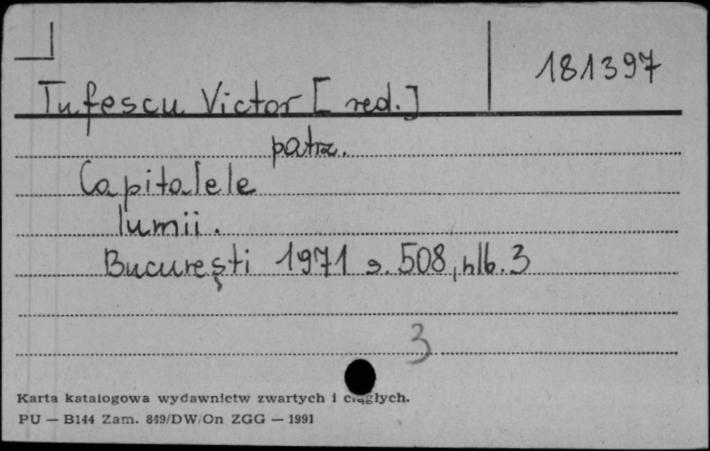 181397
Tufescu Victor [red.]
patrz.
Capitalele
lumii.
București 1971 s. 508, nlb. 3
3
Karta katalogowa wydawnictw zwartych i ciągłych.
PU — B144 Zam. 849/DW/On ZGG — 1991